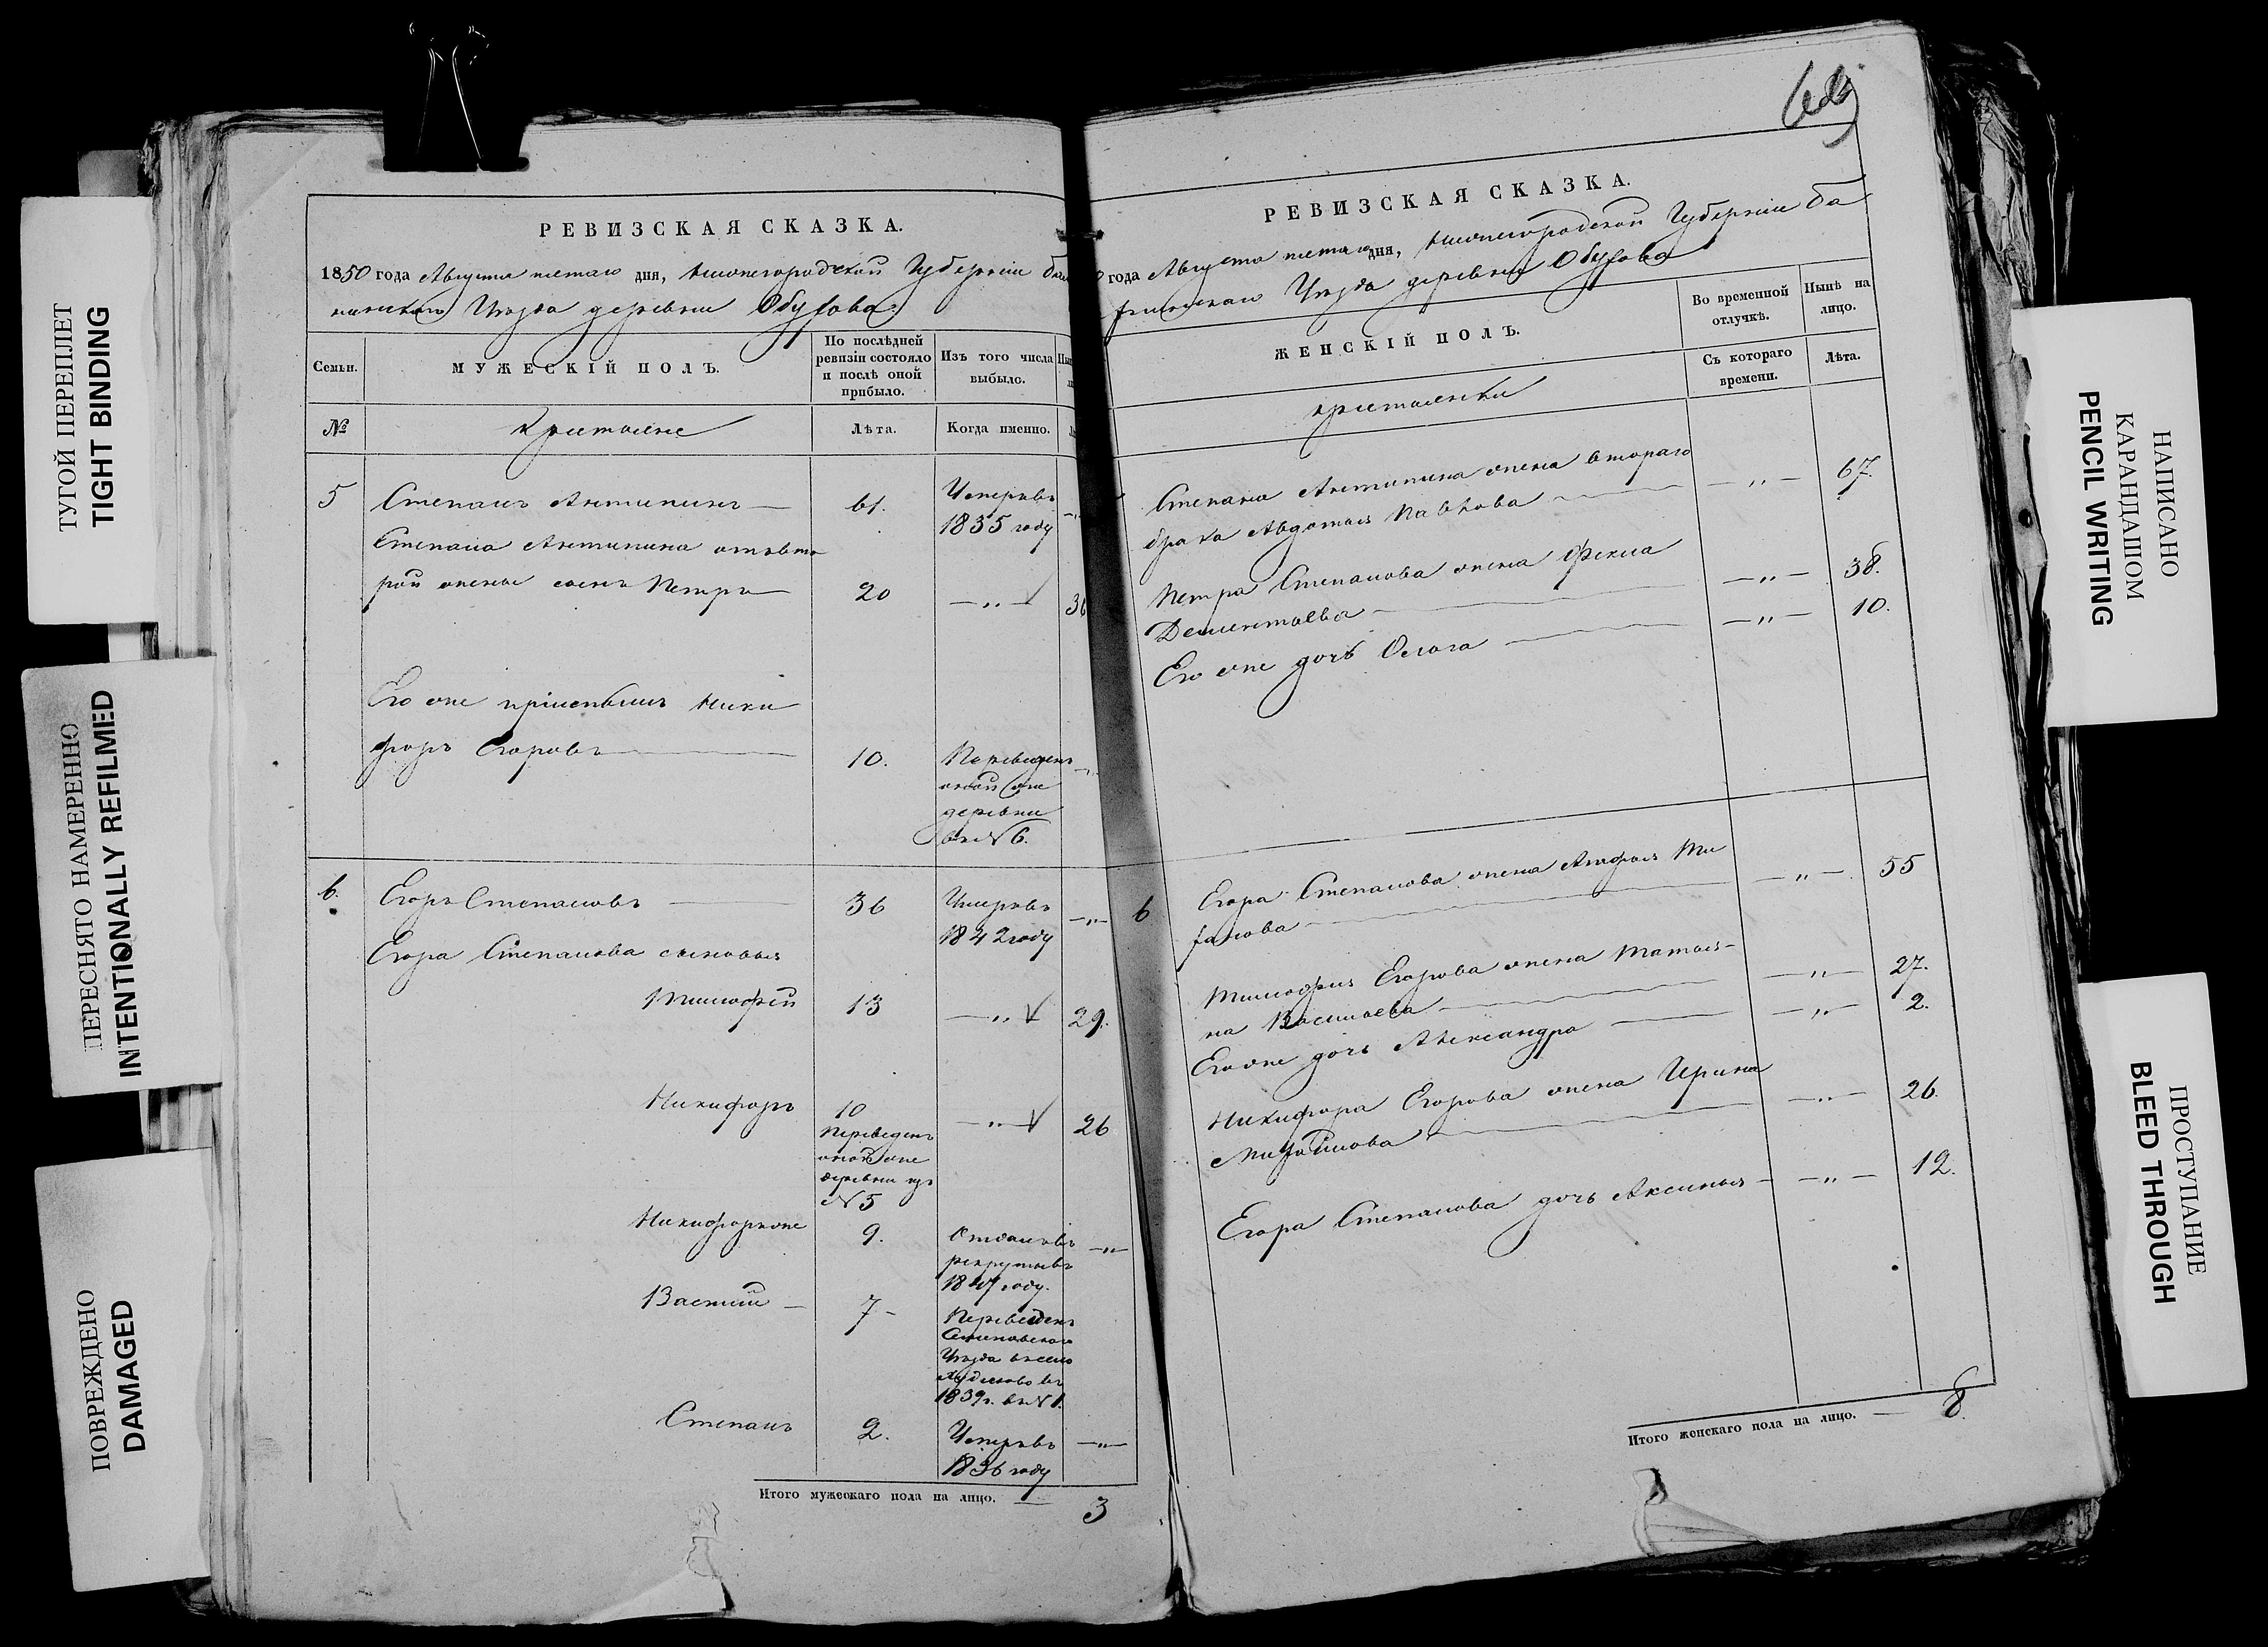 ТУГОЙ ПЕРЕПЛЕТ
TIGHT BINDING
ПЕРЕСНЯТО НАМЕРЕННО
INTENTIONALLY REFILMED
ПОВРЕЖДЕНО
DAMAGED
РЕВИЗСКАЯ СКАЗКА.
1850 года Августа дня, Нижегородской Губернiи
Уѣзда деревни Обухова
Семьи.
МУЖЕСКIЙ ПОЛЪ.
По послѣдней ревизiи состояло и послѣ оной прибыло.
Изъ того числа выбыло.
№
Крестьяне
Лѣта.
Когда именно.
5 Степанъ Антипинъ 61. Умеръ въ
1835 году
Степана Антипина отъ вто
рой жены сынъ Петръ 20 — „ — 36
Его же прiемышъ Ники
форъ Егоровъ 10. Переведенъ
оной же
деревни
въ №6.
6. Егоръ Степановъ 36 Умеръ въ — „ —
1842 году
Егора Степанова сыновья
Тимофей 13 — „ — 29.
Никифоръ 10 — „ — 26
Переведенъ
оной же
деревни изъ
№5
Никифоръ же 9. Отданъ въ — „ —
рекруты въ
1847 году.
Василiй — 7 — Переведенъ
Семеновского
Уѣзда въ село
1839г. въ №1.
Степанъ 2. Умеръ въ — „ —
1836 году
Итого мужескаго пола на лицо. — 3
РЕВИЗСКАЯ СКАЗКА.
года Августа дня, Нижегородской Губернiи Ба
Уѣзда деревни Обухова
ЖЕНСКIЙ ПОЛЪ.
Во временной отлучкѣ.
Нынѣ на лицо.
Крестьянки
Съ котораго времени.
Лѣта.
Степана Антипина жена втораго
брака Авдотья Павлова — „ — 67.
Петра Степанова жена Фекла
Дементьева — „ — 38.
Его же дочь — „ — 10.
6 Егора Степанова жена — „ — 55
Тимофея Егорова жена Татья-
на Васильева — „ — 27.
Его же дочь Александра — „ — 2.
Никифора Егорова жена Ирина
Михайлова — „ — 26.
Егора Степанова дочь Аксинья — „ — 12.
Итого женскаго пола на лицо. — 8.
НАПИСАНО КАРАНДАШОМ
PENCIL WRITING
ПРОСТУПАНИЕ
BLEED THROUGH